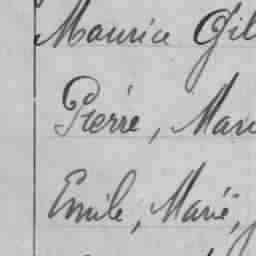 Maurice Gil
Pierre, Mari
Emile, Marie,